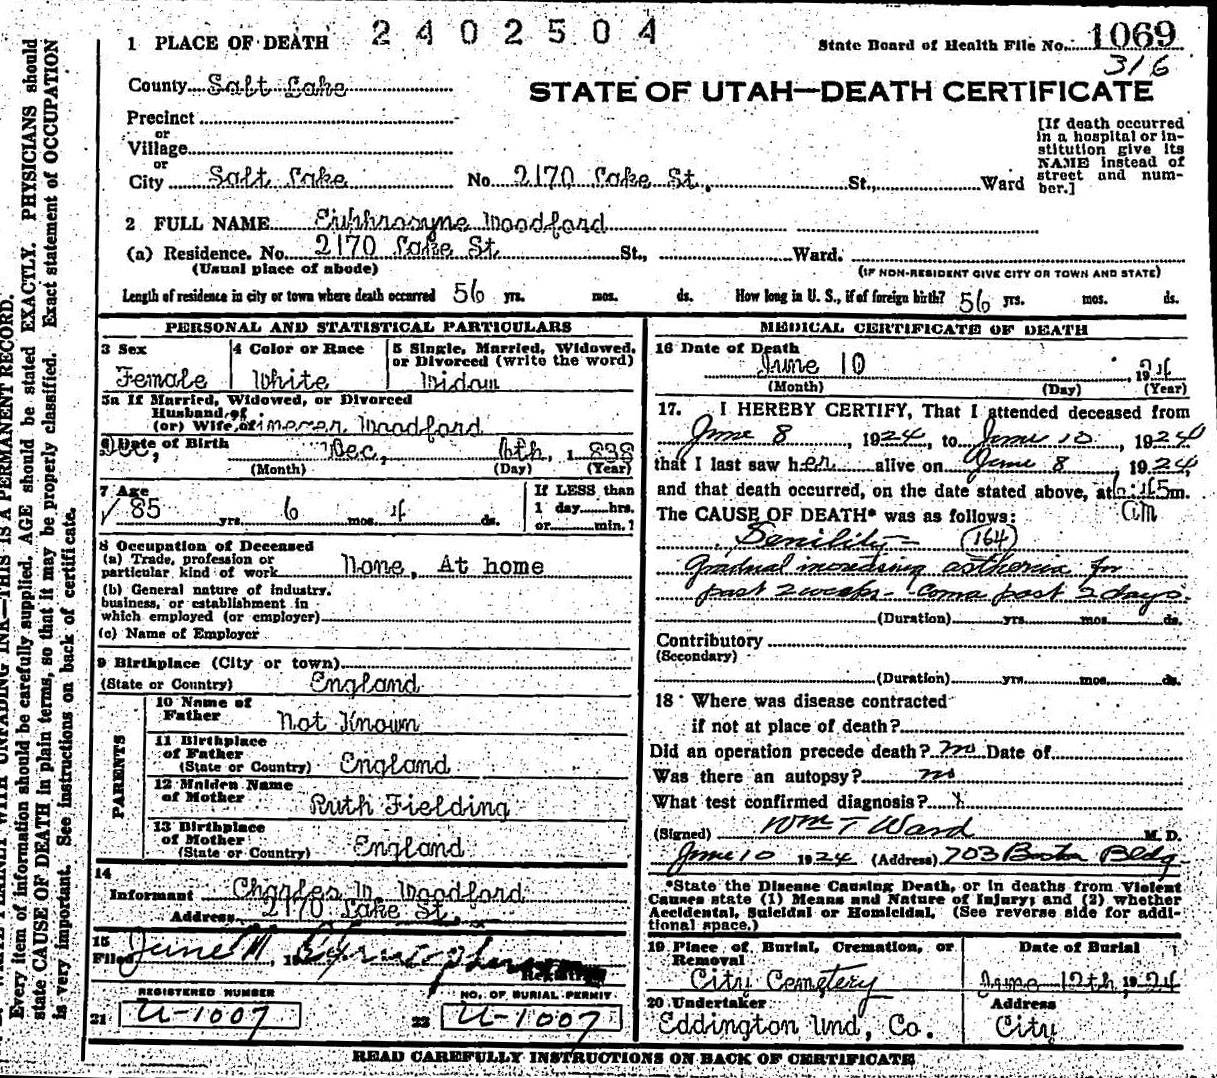 2402504
1 PLACE OF DEATH
State Board of Health File No. 1069
316
County Salt Lake
STATE OF UTAH—DEATH CERTIFICATE
Precinct
or
Village
or
City Salt Lake No. 2170 Lake St. St., Ward
[If death occurred
in a hospital or in-
stitution give its
NAME instead of
street and num-
ber.]
2 FULL NAME Euphrosyne Woodford
(a) Residence. No. 2170 Lake St. St., Ward.
(Usual place of abode) (IF NON-RESIDENT GIVE CITY OR TOWN AND STATE)
Length of residence in city or town where death occurred 56 yrs. mos. ds. How long in U. S., if of foreign birth? 56 yrs. mos. ds.
PERSONAL AND STATISTICAL PARTICULARS
3 Sex
Female
4 Color or Race
White
5 Single, Married, Widowed,
or Divorced (write the word)
Widow
5a If Married, Widowed, or Divorced
Husband of
(or) Wife of Woodford
6 Date of Birth Dec, 6th, 1838
(Month) (Day) (Year)
7 Age
85 yrs. 6 mos. 4 ds.
If LESS than
1 day hrs.
or min.?
8 Occupation of Deceased
(a) Trade, profession or
particular kind of work None, At home
(b) General nature of industry,
business, or establishment in
which employed (or employer)
(c) Name of Employer
9 Birthplace (City or town)
(State or Country) England
PARENTS
10 Name of
Father Not Known
11 Birthplace
of Father
(State or Country) England
12 Maiden Name
of Mother Ruth Fielding
13 Birthplace
of Mother
(State or Country) England
14
Informant Charles W. Woodford
Address 2170 Lake St.
15
Filed June 11, 19
Registrar
REGISTERED NUMBER
21 U-1007
NO. OF BURIAL PERMIT
22 U-1007
MEDICAL CERTIFICATE OF DEATH
16 Date of Death
June 10, 1924
(Month) (Day) (Year)
17. I HEREBY CERTIFY, That I attended deceased from
June 8, 1924, to June 10, 1924
that I last saw her alive on June 8, 1924
and that death occurred, on the date stated above, at 6:45 m.
am
The CAUSE OF DEATH* was as follows:
Senility— (164)
Gradual increasing asthenia for
past 2 weeks - Coma past 2 days.
(Duration) yrs. mos. ds.
Contributory
(Secondary)
(Duration) yrs. mos. ds.
18 Where was disease contracted
if not at place of death?
Did an operation precede death? no Date of
Was there an autopsy? no
What test confirmed diagnosis? X
(Signed) Wm T Ward M. D.
June 10 1924 (Address) 703 Boston Bldg
*State the Disease Causing Death, or in deaths from Violent
Causes state (1) Means and Nature of Injury; and (2) whether
Accidental, Suicidal or Homicidal. (See reverse side for addi-
tional space.)
19 Place of Burial, Cremation, or
Removal
City Cemetery
Date of Burial
June 12th, 1924
20 Undertaker
Eddington Und, Co.
Address
City
READ CAREFULLY INSTRUCTIONS ON BACK OF CERTIFICATE
WRITE PLAINLY WITH UNFADING INK—THIS IS A PERMANENT RECORD.
Every item of information should be carefully supplied. AGE should be stated EXACTLY. PHYSICIANS should
state CAUSE OF DEATH in plain terms, so that it may be properly classified. Exact statement of OCCUPATION
is very important. See instructions on back of certificate.